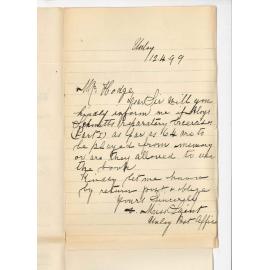 Unley
12 4 99
Mr. Hodge,
Dear Sir Will you
kindly inform me if Aloys
Schmitts Preparatory Exercises
(Part I) as far as 64 are to
be played from memory
or are they allowed to use
the book.
Kindly let me know
by return post & oblige
Yours Sincerely
Miss
Unley Post Office